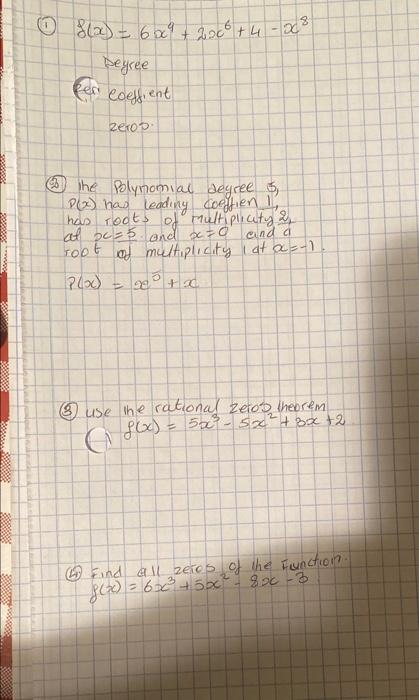 ① f(x) = 6x⁹ + 2x⁶ + 4 - x⁸
Degree
coeffient
zeros.
② The Polynomial degree 5,
P(x) has leading coeffien 1,
has roots of multiplicity 2,
at x=5 and x=0 and a
root of multiplicity 1 at x=-1.
P(x) = x⁵ + x
③ use the rational zeros theorem
f(x) = 5x³ - 5x² + 3x + 2
Find all zeros of the Function.
f(x) = 6x³ + 5x² - 8x - 3